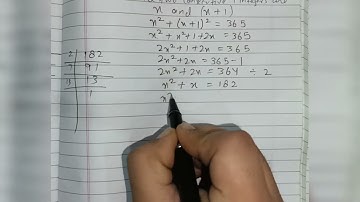 x and (x+1)
x² + (x+1)² = 365
x² + x² + 1 + 2x = 365
2x² + 1 + 2x = 365
2x² + 2x = 365 - 1
2x² + 2x = 364 ÷ 2
x² + x = 182
x²
2 | 182
7 | 91
13
1